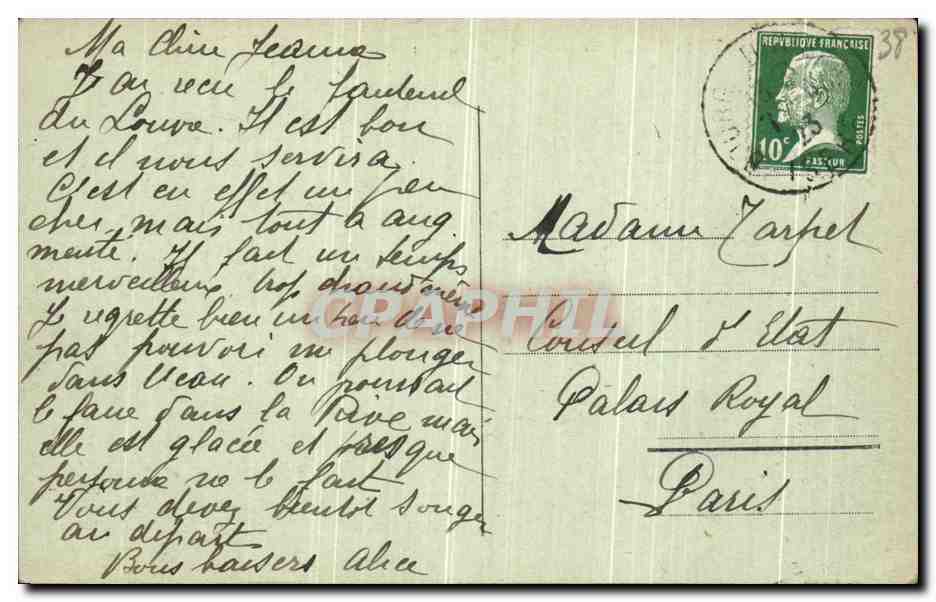 Ma Chère Jeanne
J'ai reçu le fauteuil
du Louvre. Il est bon
et il nous servira.
C'est en effet un peu
cher, mais tout a aug
menté. Il fait un temps
merveilleux trop chaud même
Je regrette bien un peu de ne
pas pouvoir me plonger
dans l'eau. On pourrait
le faire dans la Rive mais
elle est glacée et presque
personne ne le fait
Vous devez bientôt songer
au départ
Bons baisers Alice
38
REPUBLIQUE FRANÇAISE
POSTES
10c
PASTEUR
Madame Tarpet
Conseil d'Etat
Palais Royal
Paris
CPAPHIL